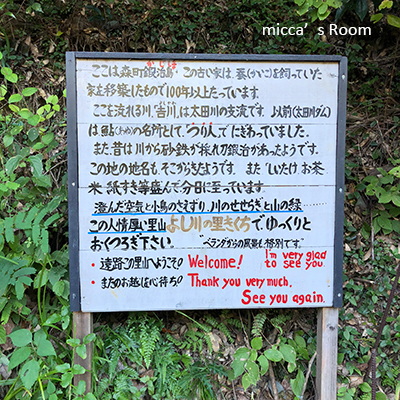 micca's Room
かじしま
ここは森町鍛治島、この古い家は、蚕(かいこ)を飼っていた
家を移築したもので100年以上たっています。
ここを流れる川、"吉川"は太田川の支流です。以前(太田川ダム)
は鮎(あゆ)の名所として、"つり人"でにぎわっていました。
また、昔は川から砂鉄が採れ刀鍛治があったようです。
この地の地名も、そこからきたようです。また「しいたけ、お茶
米、紙すき等盛んで今日に至っています。
澄んだ空気と小鳥のさえずり、川のせせらぎと山の緑……
この人情厚い里山 よし川の里きくち で、ゆっくりと
おくつろぎ下さい。 "ベランダからの風景も格別です"
・遠路この里山へようこそ! Welcome! I'm very glad
to see you.
・またのお越しを心待ち! Thank you very much.
See you again.